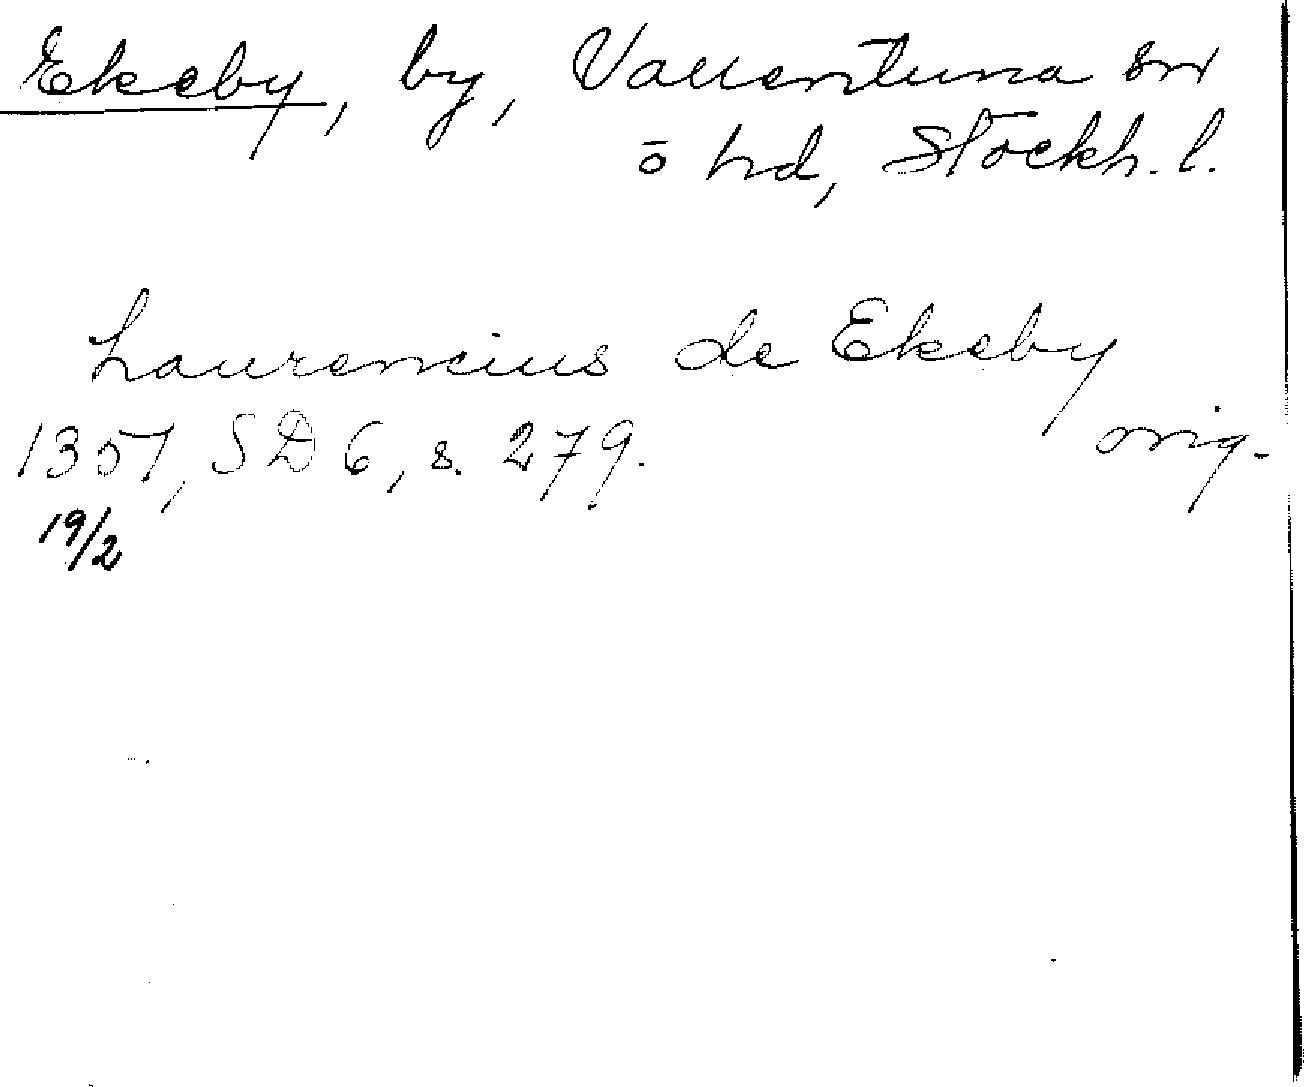 Ekeby, by, Vallentuna sn
ō hd, Stockh. l.
Laurencius de Ekeby
1351, SD 6, s. 279. orig.
19/2